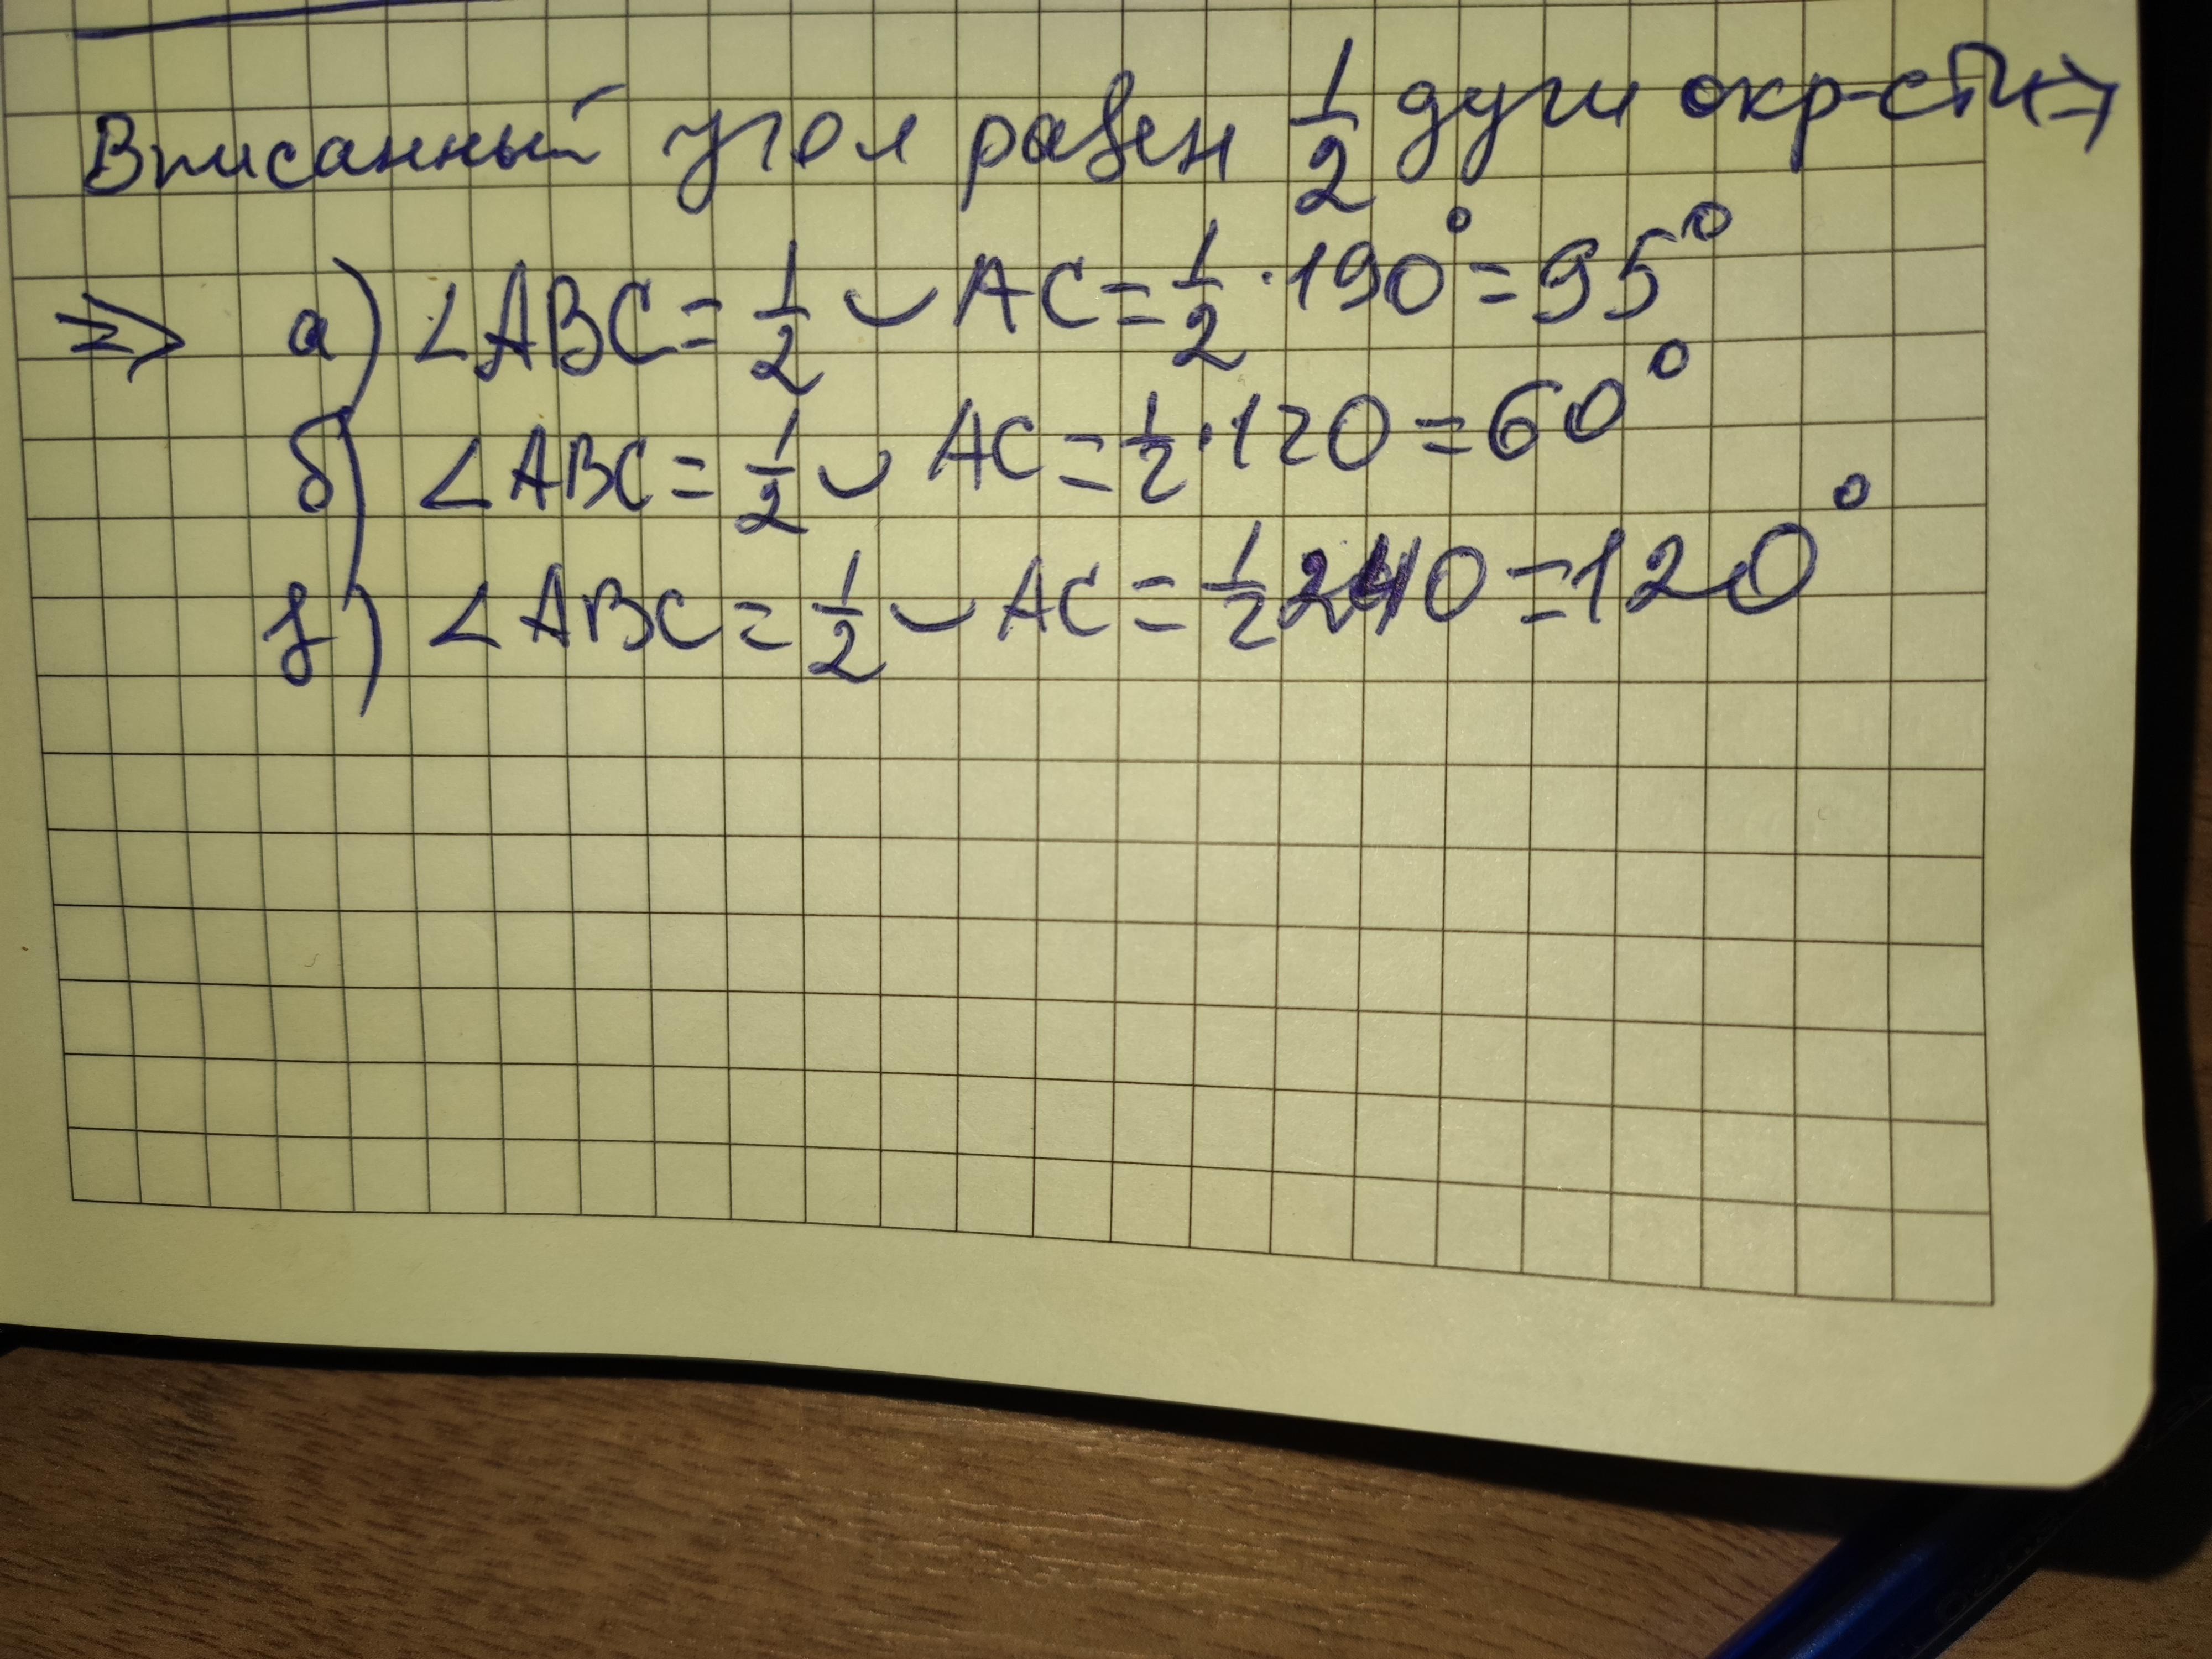 Вписанный угол равен 1/2 дуги окр-сти=>
=> а) ∠ABC = 1/2 ◡ AC = 1/2 · 190° = 95°
б) ∠ABC = 1/2 ◡ AC = 1/2 · 120 = 60°
в) ∠ABC = 1/2 ◡ AC = 1/2 240 = 120°